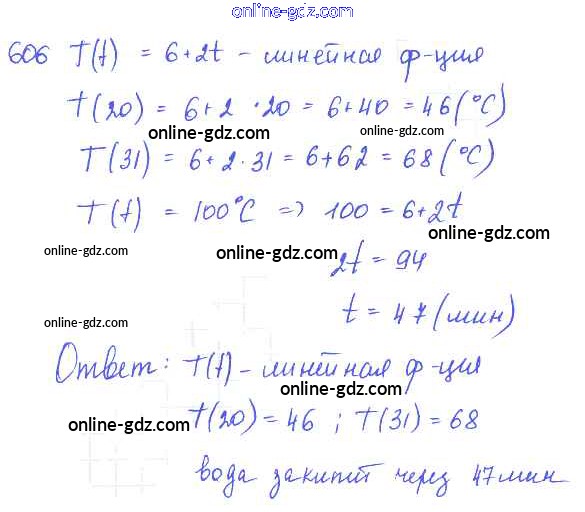 online-gdz.com
606 T(t) = 6+2t - линейная ф-ция
T(20) = 6+2 · 20 = 6+40 = 46 (°C)
online-gdz.com online-gdz.com
T(31) = 6+2·31 = 6+62 = 68 (°C)
T(t) = 100°C => 100 = 6+2t
online-gdz.com online-gdz.com online-gdz.com
2t = 94
t = 47 (мин)
online-gdz.com
Ответ: T(t) - линейная ф-ция
online-gdz.com
online-gdz.com T(20) = 46 ; T(31) = 68
вода закипит через 47 мин